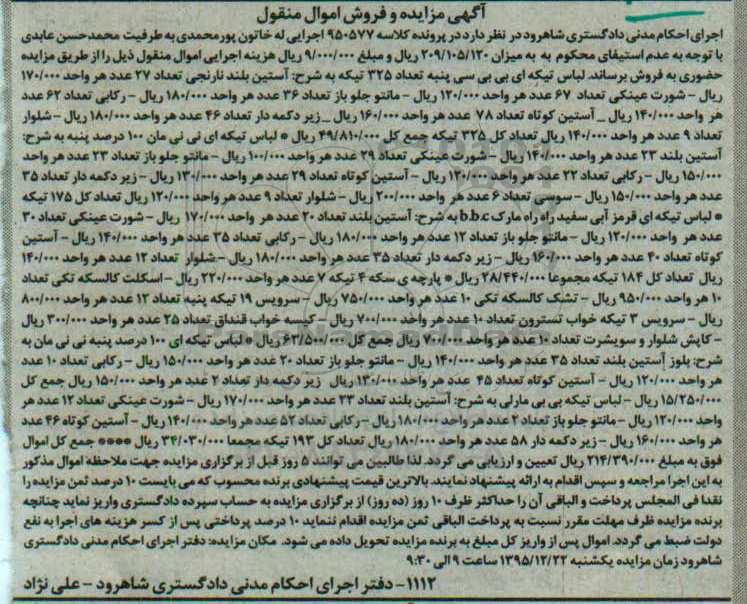 آگهی مزایده و فروش اموال منقول
اجرای احکام مدنی دادگستری شاهرود در نظر دارد در پرونده کلاسه ۹۵۰۵۷۷ اجرایی له خاتون پورمحمدی به طرفیت محمدحسن عابدی
با توجه به عدم استیفای محکوم به به میزان ۲۰۹/۱۰۵/۱۲۰ ریال و مبلغ ۹/۰۰۰/۰۰۰ ریال هزینه اجرایی اموال منقول ذیل را از طریق مزایده
حضوری به فروش برساند. لباس تیکه ای بی بی سی پنبه تعداد ۳۲۵ تیکه به شرح: آستین بلند نارنجی تعداد ۲۷ عدد هر واحد ۱۷۰/۰۰۰
ریال – شورت عینکی تعداد ۶۷ عدد هر واحد ۱۲۰/۰۰۰ ریال – مانتو جلو باز تعداد ۳۶ عدد هر واحد ۱۸۰/۰۰۰ ریال – رکابی تعداد ۶۲ عدد
هر واحد ۱۴۰/۰۰۰ ریال _ آستین کوتاه تعداد ۷۸ عدد هر واحد ۱۶۰/۰۰۰ ریال _ زیر دکمه دار تعداد ۴۶ عدد هر واحد ۱۸۰/۰۰۰ ریال – شلوار
تعداد ۹ عدد هر واحد ۱۴۰/۰۰۰ ریال تعداد کل ۳۲۵ تیکه جمع کل ۴۹/۸۱۰/۰۰۰ ریال * لباس تیکه ای نی نی مان ۱۰۰ درصد پنبه به شرح:
آستین بلند ۲۳ عدد هر واحد ۱۴۰/۰۰۰ ریال – شورت عینکی تعداد ۲۹ عدد هر واحد ۱۰۰/۰۰۰ ریال – مانتو جلو باز تعداد ۲۳ عدد هر واحد
۱۵۰/۰۰۰ ریال – رکابی تعداد ۲۲ عدد هر واحد ۱۲۰/۰۰۰ ریال – آستین کوتاه تعداد ۲۹ عدد هر واحد ۱۳۰/۰۰۰ ریال – زیر دکمه دار تعداد ۳۵
عدد هر واحد ۱۵۰/۰۰۰ ریال – سوسی تعداد ۶ عدد هر واحد ۲۰۰/۰۰۰ ریال – شلوار تعداد ۹ عدد هر واحد ۱۲۰/۰۰۰ ریال تعداد کل ۱۷۵ تیکه
* لباس تیکه ای قرمز آبی سفید راه راه مارک b.b.c به شرح: آستین بلند تعداد ۲۰ عدد هر واحد ۱۷۰/۰۰۰ ریال – شورت عینکی تعداد ۳۰
عدد هر واحد ۱۲۰/۰۰۰ ریال – مانتو جلو باز تعداد ۱۲ عدد هر واحد ۱۸۰/۰۰۰ ریال – رکابی تعداد ۳۵ عدد هر واحد ۱۴۰/۰۰۰ ریال – آستین
کوتاه تعداد ۴۰ عدد هر واحد ۱۶۰/۰۰۰ ریال – زیر دکمه دار تعداد ۳۵ عدد هر واحد ۱۸۰/۰۰۰ ریال – شلوار تعداد ۱۲ عدد هر واحد ۱۴۰/۰۰۰
ریال تعداد کل ۱۸۴ تیکه مجموعا ۲۸/۴۴۰/۰۰۰ ریال * پارچه ی سکه ۴ تیکه ۷ عدد هر واحد ۲۲۰/۰۰۰ ریال – اسکلت کالسکه تکی تعداد
۱۰ هر واحد ۹۵۰/۰۰۰ ریال – تشک کالسکه تکی ۱۰ عدد هر واحد ۷۵۰/۰۰۰ ریال – سرویس ۱۹ تیکه پنبه تعداد ۱۲ عدد هر واحد ۸۰۰/۰۰۰
ریال – سرویس ۳ تیکه خواب تسترون تعداد ۱۰ عدد هر واحد ۷۰۰/۰۰۰ ریال – کیسه خواب قنداق تعداد ۲۵ عدد هر واحد ۳۰۰/۰۰۰ ریال
– کاپش شلوار و سویشرت تعداد ۱۰ عدد هر واحد ۷۰۰/۰۰۰ ریال جمع کل ۶۳/۵۰۰/۰۰۰ ریال * لباس تیکه ای ۱۰۰ درصد پنبه نی نی مان به
شرح: بلوز آستین بلند تعداد ۳۵ عدد هر واحد ۱۴۰/۰۰۰ ریال – مانتو جلو باز تعداد ۲۰ عدد هر واحد ۱۵۰/۰۰۰ ریال – رکابی تعداد ۱۰ عدد
هر واحد ۱۲۰/۰۰۰ ریال – آستین کوتاه تعداد ۴۵ عدد هر واحد ۱۳۰/۰۰۰ ریال زیر دکمه دار تعداد ۲ عدد هر واحد ۱۵۰/۰۰۰ ریال جمع کل
۱۵/۲۵۰/۰۰۰ ریال – لباس تیکه بی بی مارلی به شرح: آستین بلند تعداد ۳۳ عدد هر واحد ۱۷۰/۰۰۰ ریال – شورت عینکی تعداد ۱۲ عدد هر
واحد ۱۲۰/۰۰۰ ریال – مانتو جلو باز تعداد ۲ عدد هر واحد ۱۸۰/۰۰۰ ریال – رکابی تعداد ۵۲ عدد هر واحد ۱۴۰/۰۰۰ ریال – آستین کوتاه ۴۶ عدد
هر واحد ۱۶۰/۰۰۰ ریال – زیر دکمه دار ۵۸ عدد هر واحد ۱۸۰/۰۰۰ ریال تعداد کل ۱۹۳ تیکه مجمعا ۳۴/۰۳۰/۰۰۰ ریال **** جمع کل اموال
فوق به مبلغ ۲۱۴/۳۹۰/۰۰۰ ریال تعیین و ارزیابی می گردد. لذا طالبین می توانند ۵ روز قبل از برگزاری مزایده جهت ملاحظه اموال مذکور
به این اجرا مراجعه و سپس اقدام به ارائه پیشنهاد نمایند. بالاترین قیمت پیشنهادی برنده محسوب که می بایست ۱۰ درصد ثمن مزایده را
نقدا فی المجلس پرداخت و الباقی آن را حداکثر ظرف ۱۰ روز (ده روز) از برگزاری مزایده به حساب سپرده دادگستری واریز نماید چنانچه
برنده مزایده ظرف مهلت مقرر نسبت به پرداخت الباقی ثمن مزایده اقدام ننماید ۱۰ درصد پرداختی پس از کسر هزینه های اجرا به نفع
دولت ضبط می گردد. اموال پس از واریز کل مبلغ به برنده مزایده تحویل داده می شود. مکان مزایده: دفتر اجرای احکام مدنی دادگستری
شاهرود زمان مزایده یکشنبه ۱۳۹۵/۱۲/۲۲ ساعت ۹ الی ۹:۳۰
۱۱۱۲- دفتر اجرای احکام مدنی دادگستری شاهرود – علی نژاد